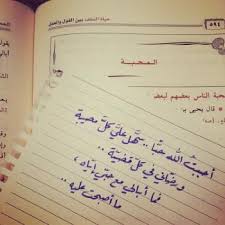 حياة السلف بين القول والعمل
٥٩٤
المحبة
محبة الناس بعضهم لبعض
قال يحيى
أحببتُ الله حبًّا.. سهّل عليّ كلّ مصيبة
ورضّاني في كلّ قضيّة ..
فما أبالي مع حبّي إيّاه ،
ما أصبحت عليه ..